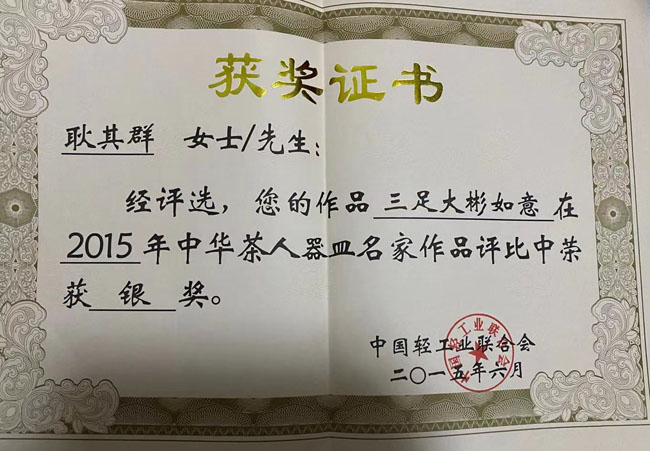 获奖证书
耿其群 女士/先生：
经评选，您的作品 三足大彬如意 在
2015 年中华茶人器皿名家作品评比中荣
获 银 奖。
中国轻工业联合会
二〇一五年六月
中国轻工业联合会